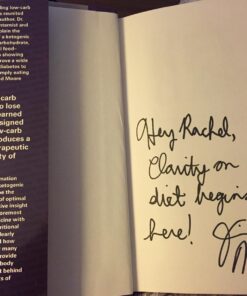 ding low-carb
reunited
author, Dr.
ternist and
plain the
a ketogenic
carbohydrate,
food-
s showing
prove a wide
diabetes to
mply eating
d Moore
-carb
to lose
earned
signed
w-carb
oduces a
rapeutic
ty of
mation
ketogenic
e the
of optimal
tive insight
oremost
icine with
ritional
learly
d how
r many
rovide
body
t behind
s of
Hey Rachel,
Clarity on
diet begins
here!